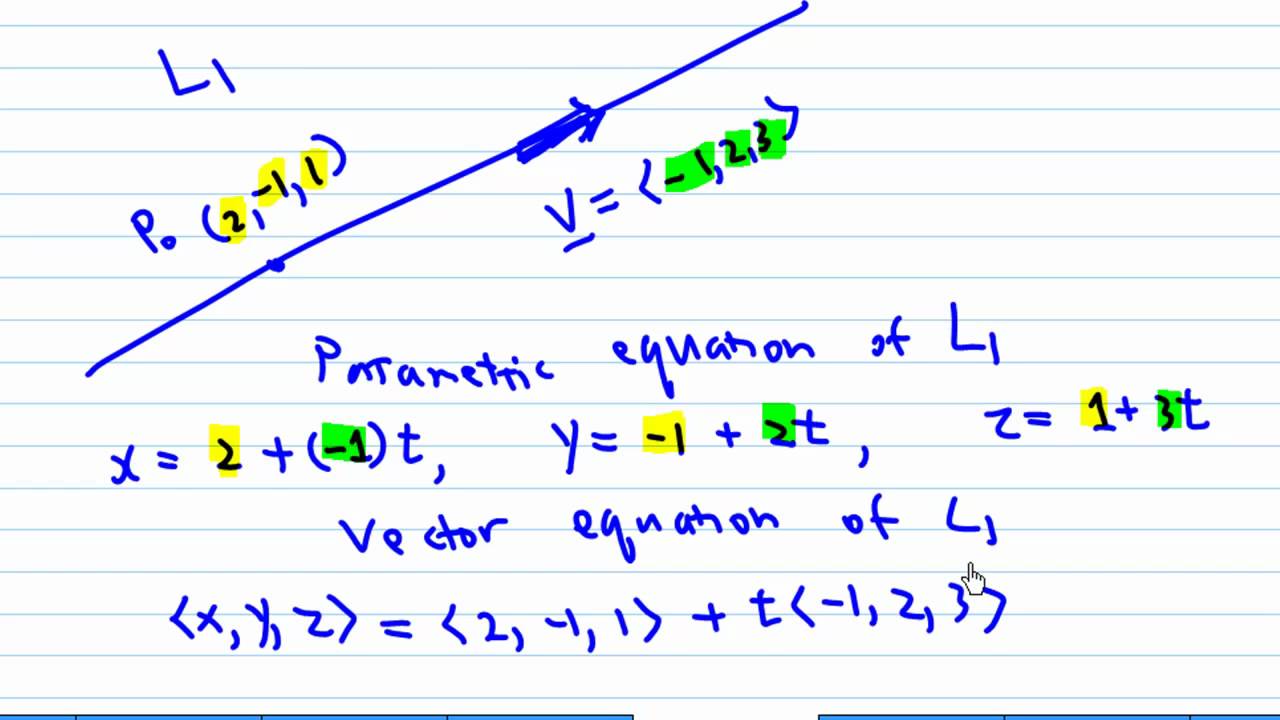 L1
P₀ (2, -1, 1)
V = <-1, 2, 3>
Parametric equation of L1
x = 2 + (-1)t, y = -1 + 2t, z = 1 + 3t
Vector equation of L1
<x, y, z> = <2, -1, 1> + t<-1, 2, 3>